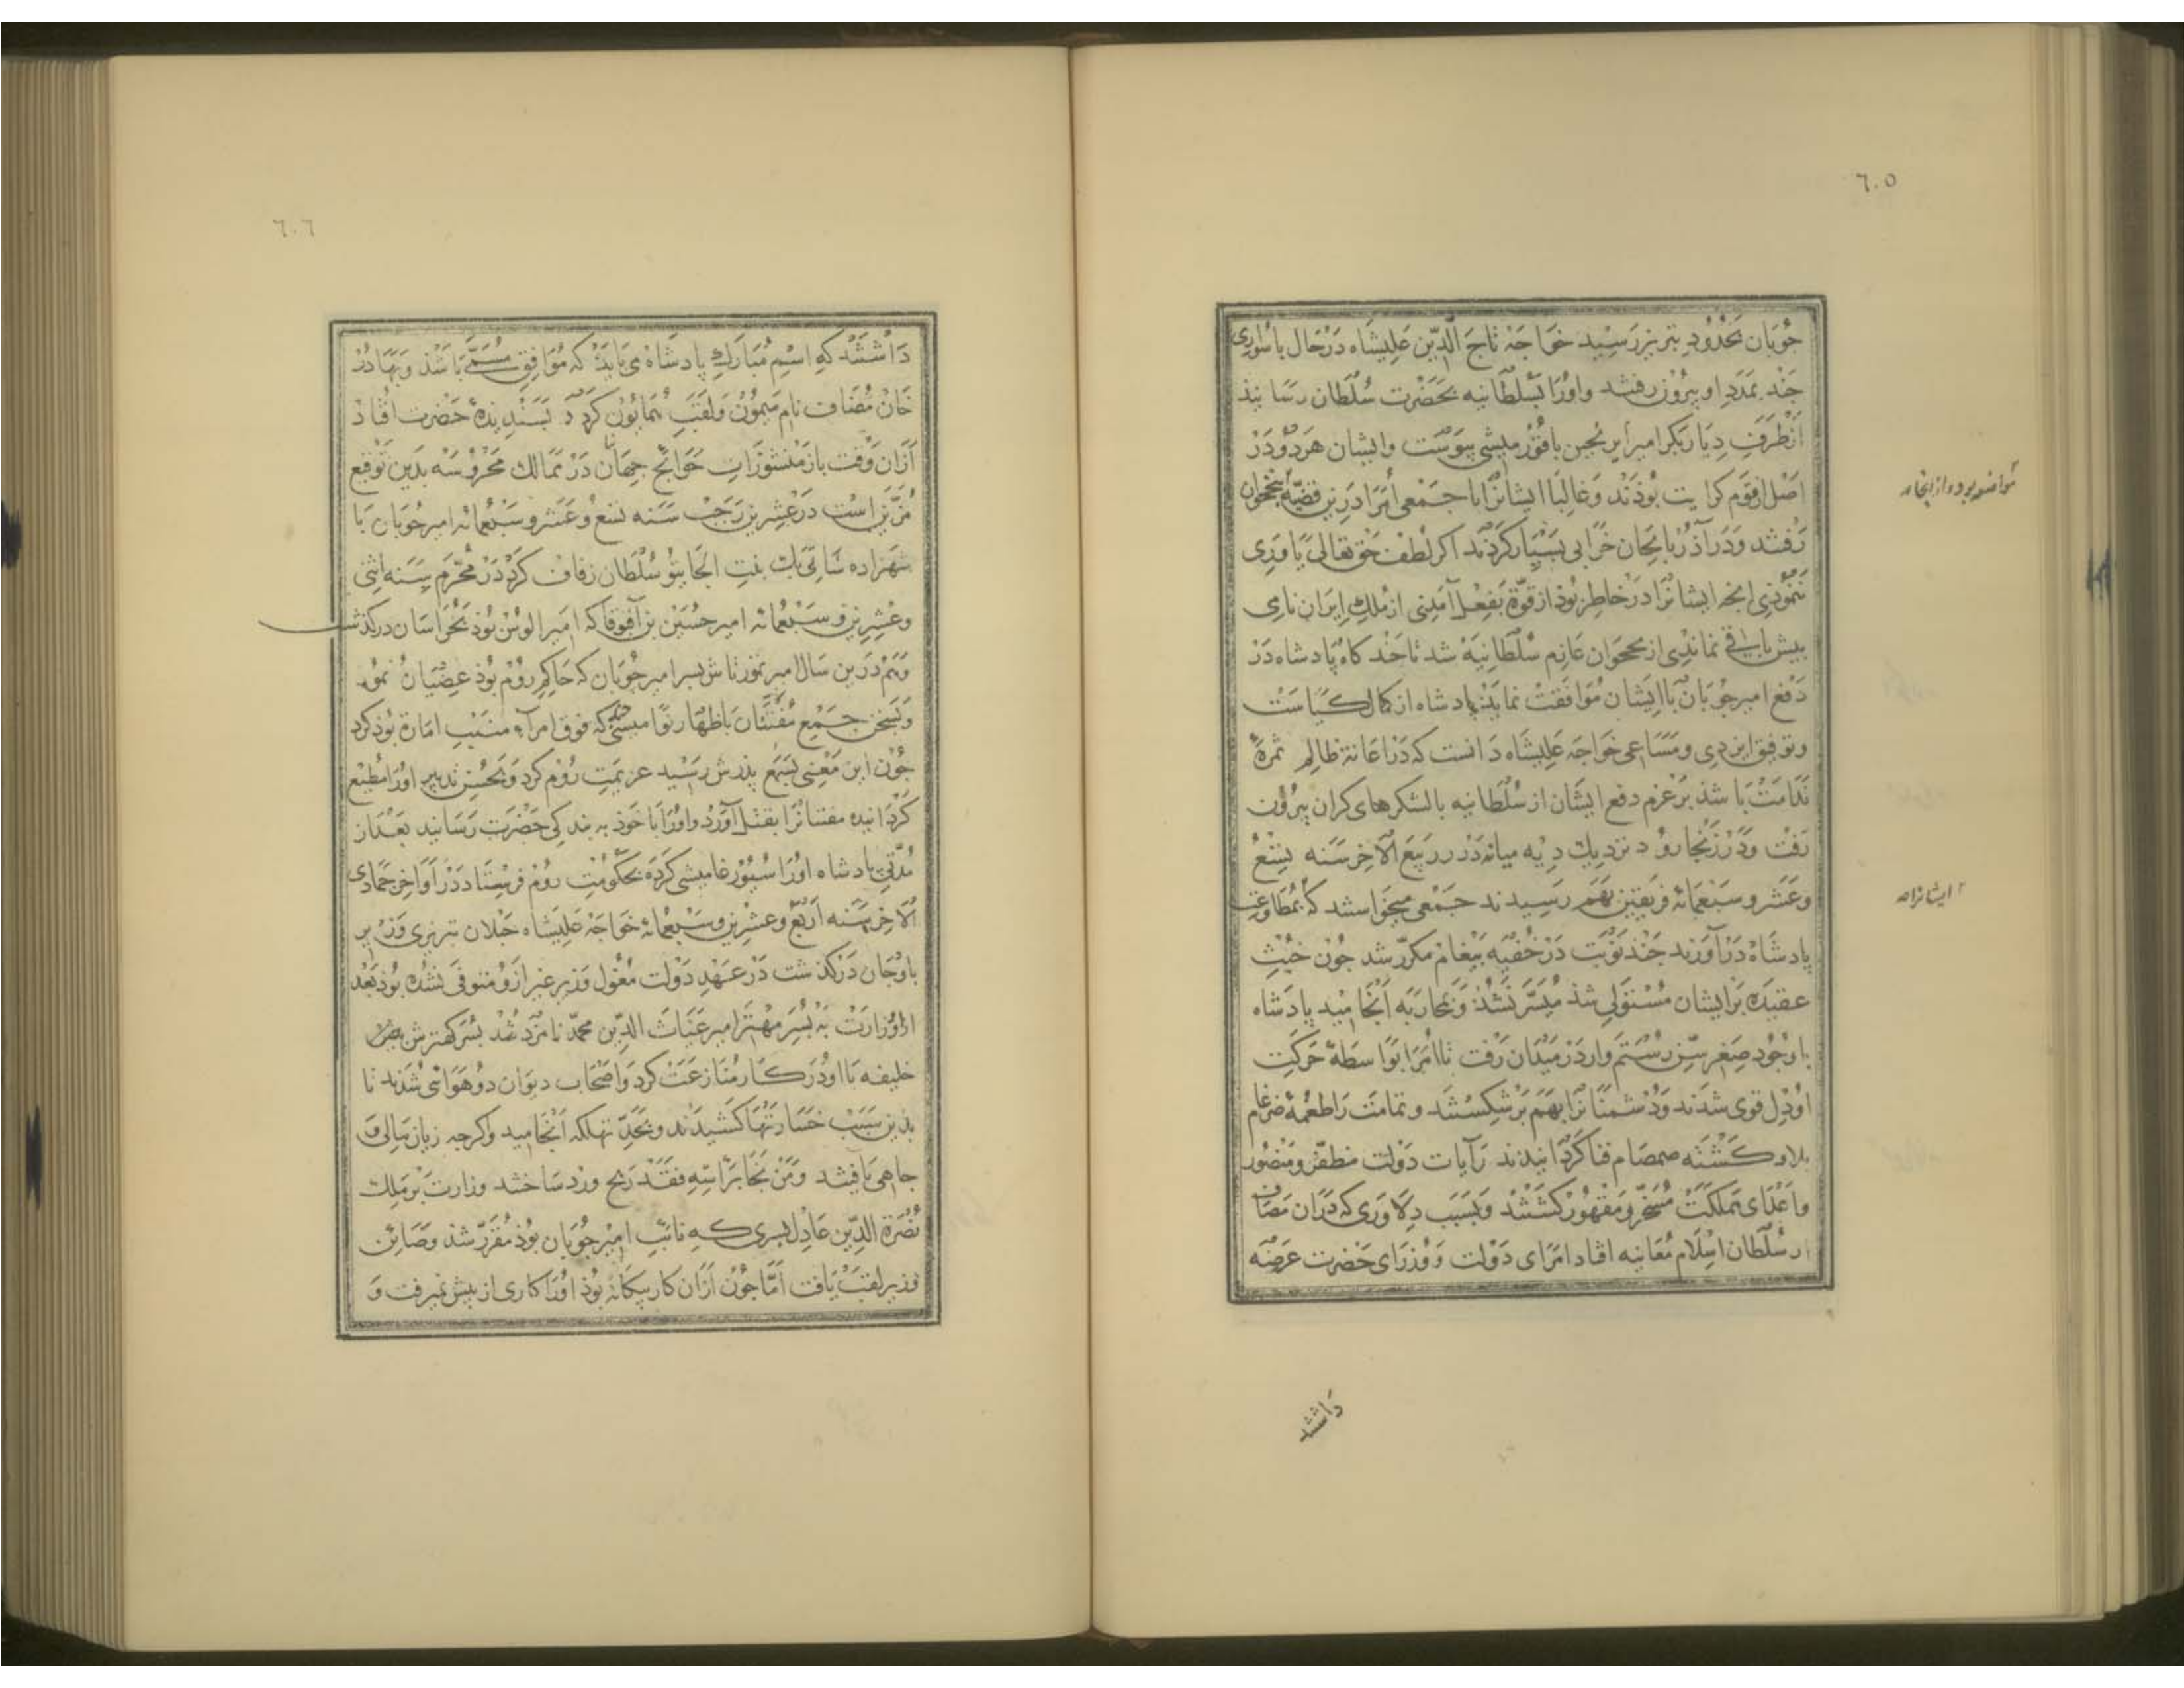 ٦٠٥
جوبان بحدود تبریز رسید خواجه تاج الدین علیشاه درحال با سواری
جند بمدد او بیرون رفتند واورا بسلطانیه بحضرت سلطان رسانید
ازطرف دیاربکر امیر ایرنجین باقورمیشی پیوست وایشان هردو در
اصل ازقوم کرایت بوذند وغالبا ایشانرا با جمعی أمرا درین قضیه بنخجوان
رفتند ودر آذربایجان خرابی بسیار کردند اکر لطف حق تعالی یاوری
ننموذی انجه ایشانرا در خاطر بوذ از قوة بفعل آمدنی ازملك ایران نامی
بیش باقی نماندی از نخجوان عازم سلطانیه شد تا جند کاه پادشاه در
دفع امیر جوبان باایشان موافقت نماید پادشاه از کمال کیاست
وتوفیق ایزدی ومساعی خواجه علیشاه دانست که در اعانة ظالم ثمرهٔ
ندامت باشذ بر عزم دفع ایشان از سلطانیه بالشکرهای کران بیرون
رفت ودر زنجارود نزدیك دیه میانه در ربیع الآخر سنه تسع
وعشر وسبعمائه فریقین بهم رسیدند جمعی میخواستند که بمطاوعت
پادشاه درآورند جند نوبت در خفیه بیغام مکرر شد جون خبث
عقیده بر ایشان مستولی شذ میسر نشذ وبمحاربه انجامید پادشاه
باوجود صغر سن رستم وار در میدان رفت تا امرا بواسطهٔ حرکت
اودل قوی شدند ودشمنانرا بهم برشکستند وتمامت را طعمهٔ ضرغام
بلا وکشته صمصام فنا کردانیدند رآیات دولت مظفر ومنصور
واعدای مملکت مسخر ومقهور کشتند وبسبب دلاوری که در آن مصاف
از سلطان اسلام معاینه افتاد امرای دولت ووزرای حضرت عرضه
داشتند
ایشانرا
٦٠٦
داشتند که اسم مبارك پادشاه می باید که موافق مسمی باشذ وبهادر
خان مضاف نام میمون ولقب همایون کرد د بسندیدهٔ حضرت افتاد
ازان وقت باز منشورات حوائج جهان در ممالك محروسه بدین توقیع
مزین است در عشرین رجب سنه تسع وعشر وسبعمائه امیر جوبان با
شهزاده ساتی بك بنت الجایتو سلطان زفاف کرد در محرم سنه اثنی
وعشرین وسبعمائه امیر حسین بن آقبوقا که امیر الوس بوذ بخراسان درکذشت
وهم درین سال امیر تمورتاش بسر امیر جوبان که حاکم روم بوذ عصیان نمود
وبسخن جمع مفتنان باظهار که فوق امراء منسب امارة بوذ کرد
جون این معنی بسمع پدرش رسید عزیمت روم کرد وبحسن تدبیر اورا مطیع
کردانیده مفتنانرا بقتل آورد واورا با خوذ به بندکی حضرت رسانید بعداز
مدتی پادشاه اورا سیورغامیشی کرده بحکومت روم فرستاد در أواخر جمادی
الآخر سنه أربع وعشرین وسبعمائه خواجه علیشاه جیلان تبریزی وزیر
باوجان درکذشت در عهد دولت مغول وزیر غیر ازو متوفی نشده بوذ بعد
ازو وزارت به بسر مهتر امیر غیاث الدین محمد نامزد شد بسر کهترش
خلیفه با او در کار منازعت کرد واصحاب دیوان دو هوائی شدند تا
بذین سبب خسارتها کشیدند وبحد تهلکه انجامید وکرجه زیان مالی و
جاهی یافتند ومن نجا برأسه فقد ربح ورد ساختند وزارت بر ملك
نصرة الدین عادل نسوی که نائب امیر جوبان بوذ مقرر شذ وصائن
وزیر لقب یافت أما جون ازان کار بیکانه بوذ اورا کاری از پیش نمیرفت و